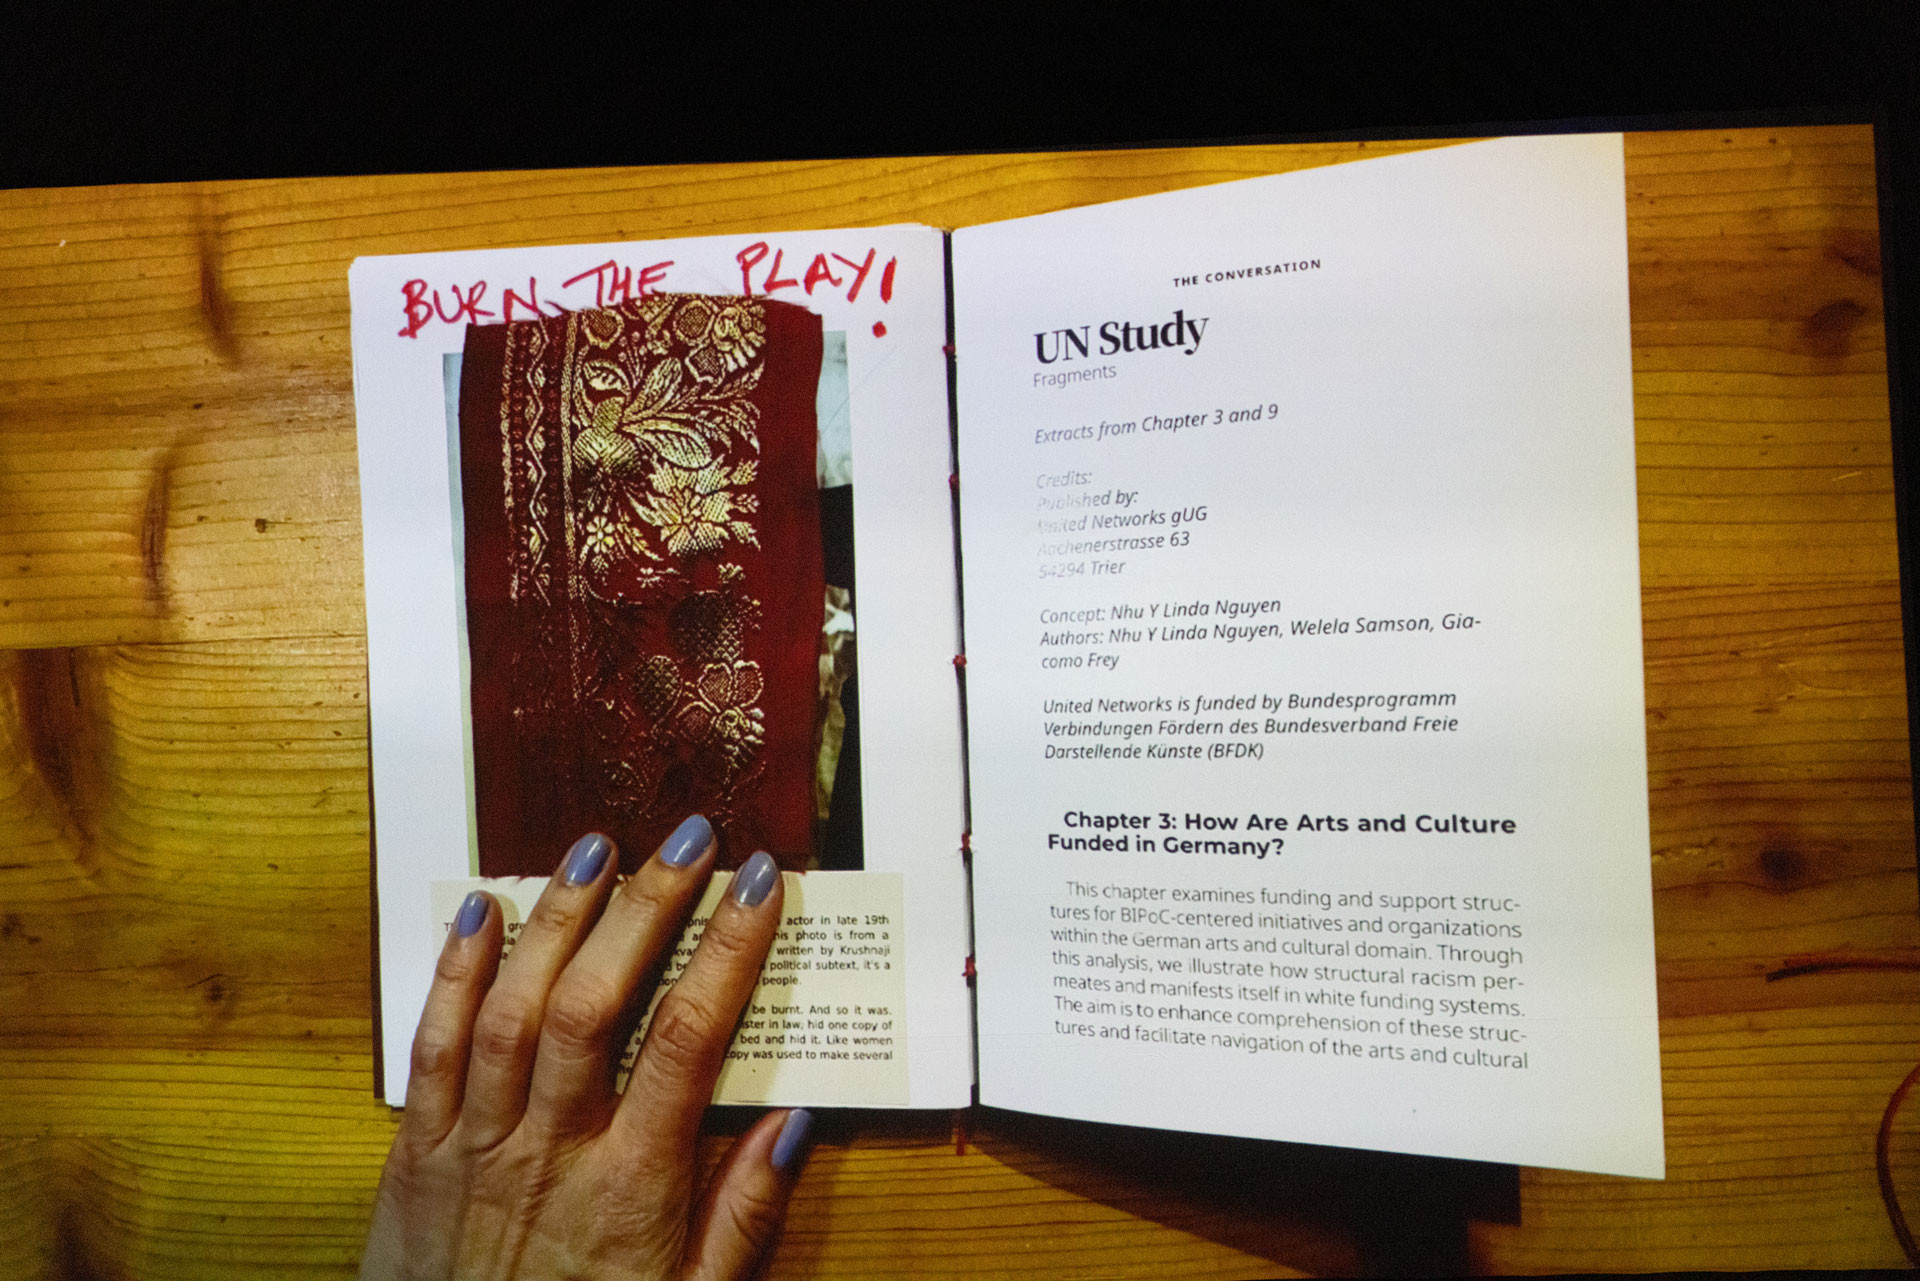 BURN THE PLAY!
actor in late 19th
photo is from a
written by Krushnaji
political subtext, it's a
people.
be burnt. And so it was.
in law, hid one copy of
bed and hid it. Like women
copy was used to make several
THE CONVERSATION
UN Study
Fragments
Extracts from Chapter 3 and 9
Credits:
Published by:
United Networks gUG
Aachenerstrasse 63
54294 Trier
Concept: Nhu Y Linda Nguyen
Authors: Nhu Y Linda Nguyen, Welela Samson, Gia-
como Frey
United Networks is funded by Bundesprogramm
Verbindungen Fördern des Bundesverband Freie
Darstellende Künste (BFDK)
Chapter 3: How Are Arts and Culture
Funded in Germany?
This chapter examines funding and support struc-
tures for BIPoC-centered initiatives and organizations
within the German arts and cultural domain. Through
this analysis, we illustrate how structural racism per-
meates and manifests itself in white funding systems.
The aim is to enhance comprehension of these struc-
tures and facilitate navigation of the arts and cultural